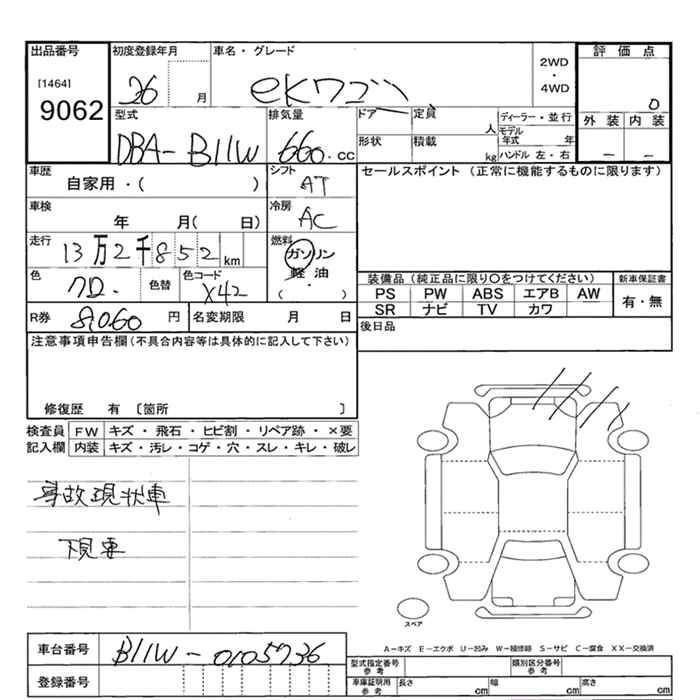 出品番号 初度登録年月 車名・グレード 評価点
[1464] 9062 26 月 eKワゴン 2WD ・ 4WD 0
型式 排気量 ドア 定員 人 ディーラー・並行 外装 内装
DBA-B11W 660.cc 形状 積載 kg モデル年式 年 ハンドル 左・右 - -
車歴 自家用・( ) シフト AT セールスポイント (正常に機能するものに限ります)
車検 年 月( 日) 冷房 AC
走行 13万2千852km 燃料 ガソリン 軽油 ( ・ )
色 クロ. 色替 色コード X42
装備品 (純正品に限り○をつけてください) 新車保証書
PS PW ABS エアB AW 有・無
SR ナビ TV カワ
R券 8,060 円 名変期限 月 日 後日品
注意事項申告欄(不具合内容等は具体的に記入して下さい)
修復歴 有 〔箇所 〕
検査員 FW キズ・飛石・ヒビ割・リペア跡・×要
記入欄 内装 キズ・汚レ・コゲ・穴・スレ・キレ・破レ
事故現状車
下見要
スペア
車台番号 B11W-0105736
A-キズ E-エクボ U-凹み W-補修跡 S-サビ C-腐食 XX-交換済
登録番号
型式指定番号 参考 類別区分番号 参考
車庫証明用 参考 長さ cm 幅 cm 高さ cm